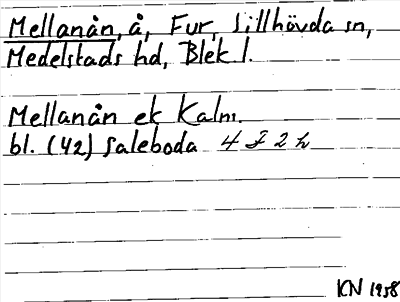 Mellanån, å, Fur, Sillhövda sn,
Medelstads hd, Blek l.
Mellanån ek Kalm.
bl. (42) Saleboda 4 F 2 h
KN 1958